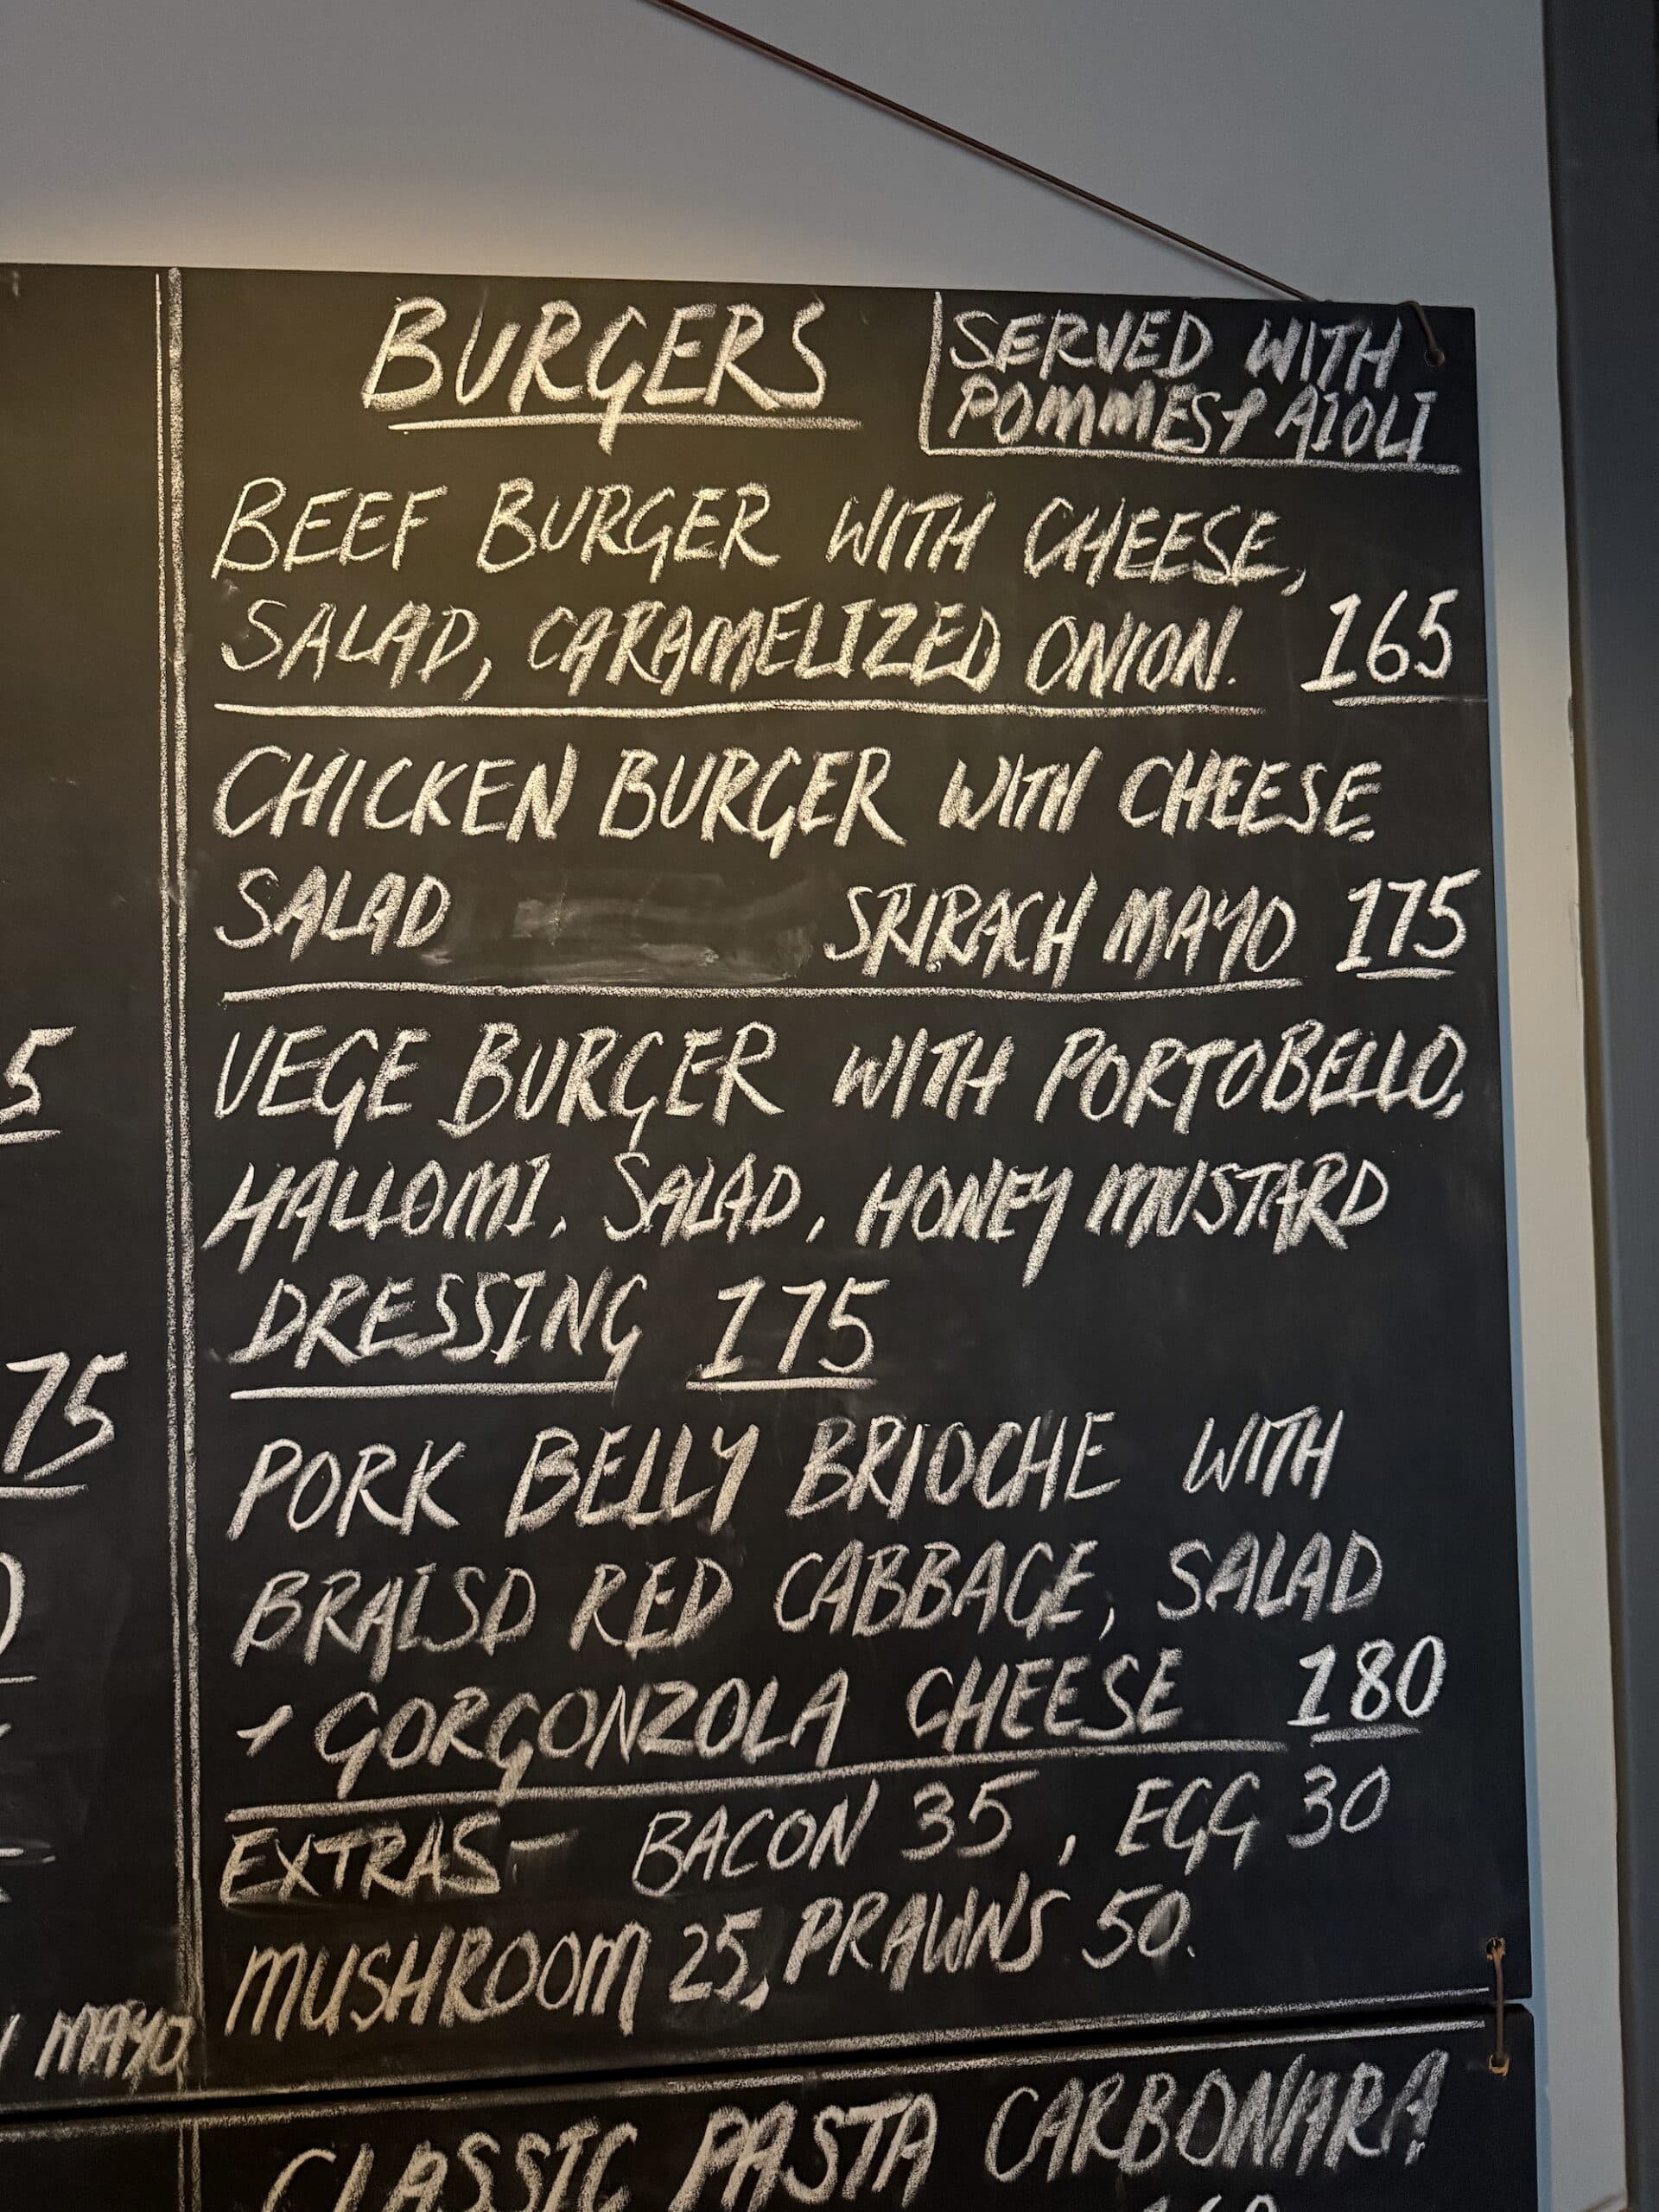 BURGERS
SERVED WITH
POMMES + AIOLI
BEEF BURGER WITH CHEESE,
SALAD, CARAMELIZED ONION. 165
CHICKEN BURGER WITH CHEESE
SALAD SRIRACH MAYO 175
VEGE BURGER WITH PORTOBELLO,
HALLOMI, SALAD, HONEY MUSTARD
DRESSING 175
PORK BELLY BRIOCHE WITH
BRAISD RED CABBAGE, SALAD
+ GORGONZOLA CHEESE 180
EXTRAS - BACON 35, EGG 30
MUSHROOM 25, PRAWNS 50.
5
75
MAYO
CLASSIC PASTA CARBONARA